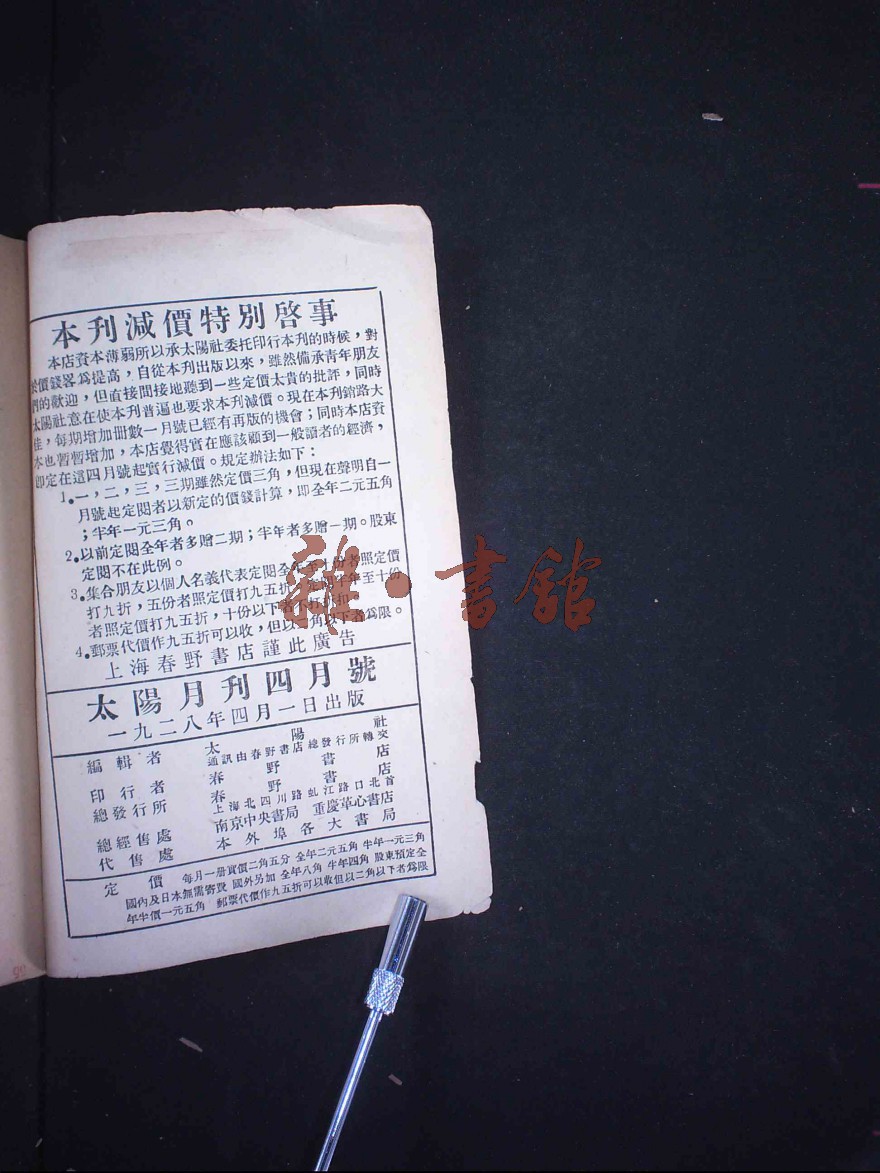 本刊減價特別啓事
本店資本薄弱所以承太陽社委托印行本刊的時候，對
價錢畧爲提高，自從本刊出版以來，雖然備承青年朋友
們的歡迎，但直接間接地聽到一些定價太貴的批評，同時
太陽社意在使本刊普遍也要求本刊減價。現在本刊銷路大
佳，每期增加冊數一月號已經有再版的機會；同時本店資
本也暫暫增加，本店覺得實在應該顧到一般讀者的經濟，
卽定在這四月號起實行減價。規定辦法如下：
1.一，二，三，三期雖然定價三角，但現在聲明自一
月號起定閱者以新定的價錢計算，即全年二元五角
；半年一元三角。
2.以前定閱全年者多贈二期；半年者多贈一期。股東
定閱不在此例。
3.集合朋友以個人名義代表定閱全年至十份者照定價
打九折，五份者照定價打九五折，定閱半年至十份
者照定價打九五折，十份以下者不打折扣。
4.郵票代價作九五折可以收，但以二角以下者爲限。
上海春野書店謹此廣告
太陽月刊四月號
一九二八年四月一日出版
編輯者 太陽社
通訊由春野書店總發行所轉交
印行者 春野書店
總發行所 春野書店
上海北四川路虬江路口北首
總經售處 南京中央書局 重慶革心書店
代售處 本外埠各大書局
定價 每月一册實價二角五分 全年二元五角 半年一元三角
國內及日本無需寄費 國外另加 全年八角 半年四角 股東預定全
年半價一元五角 郵票代價作九五折可以收但以二角以下者爲限
雜·書館